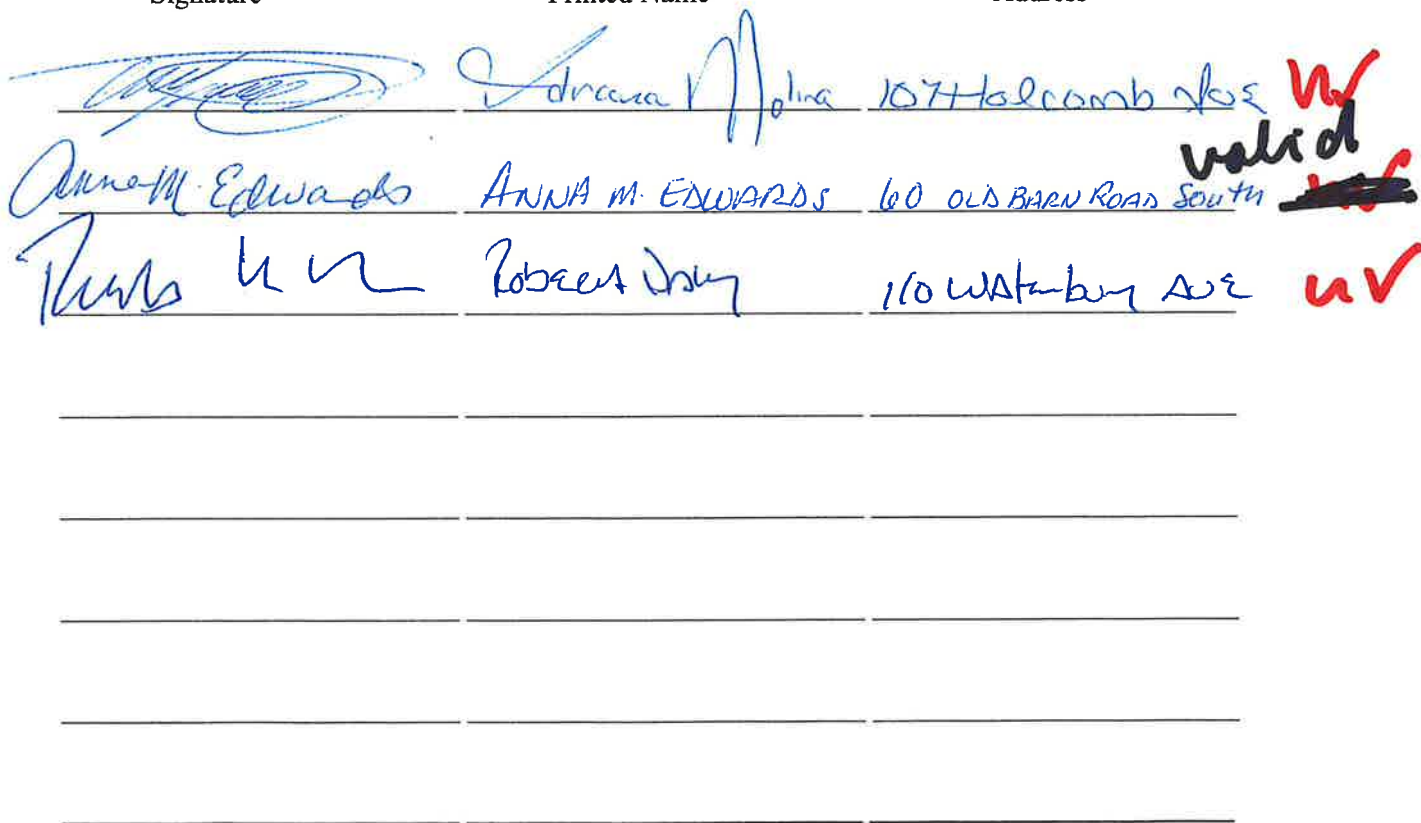 Signature Printed Name Address
Adriana Molina 107 Holcomb Ave uv
valid
Anna M. Edwards ANNA M. EDWARDS 60 OLD BARN ROAD South
Robert 110 Waterbury Ave uv